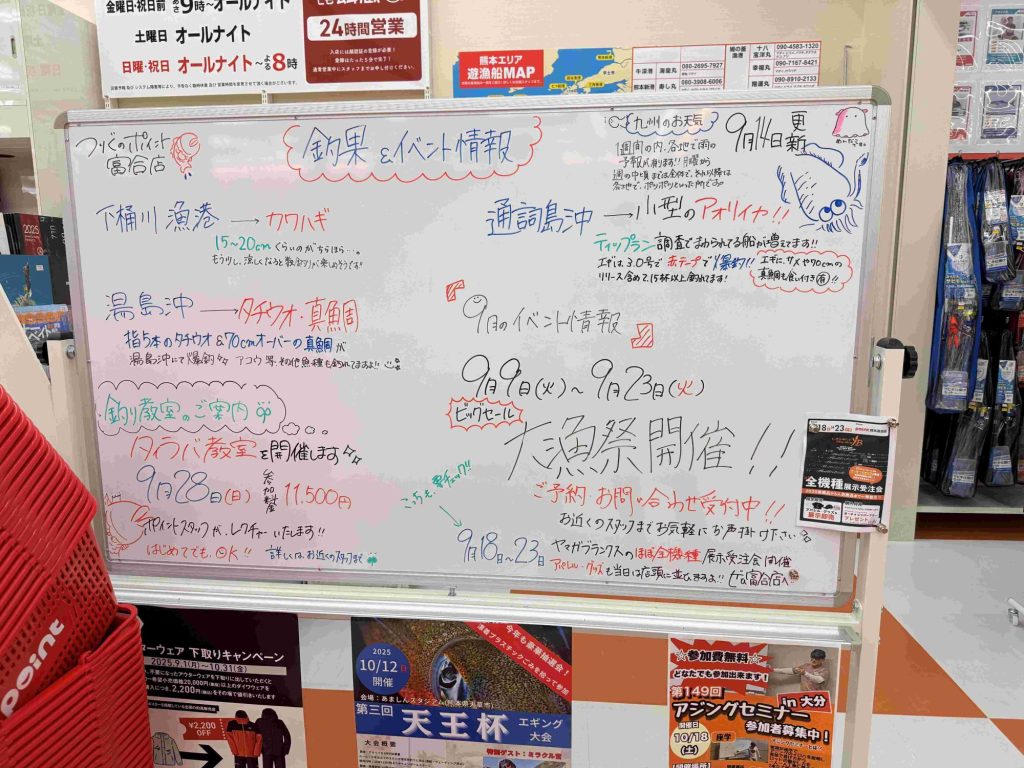 金曜日・祝日前 あさ9時～オールナイト
土曜日 オールナイト
日曜・祝日 オールナイト～よる8時
24時間営業
熊本エリア
遊漁船MAP
牛深港 海座丸 080-2695-7927
熊本新港 寿し丸 080-3908-6006
090-4583-1320
幸福丸 090-7167-8421
陽運丸 090-8910-2133
つりぐのポイント
富合店
釣果&イベント情報
九州のお天気
1週間の内、各地で雨の
予報が有ります!!月曜から
週の中頃までは全体で、それ以降は
各地で、ポツポツといった所です。
9月14日更新
下桶川漁港→カワハギ
15～20cmくらいのがちらほら…。
もう少し、涼しくなると数釣りが楽しめそうです!!
湯島沖→タチウオ・真鯛
指5本のタチウオ&70cmオーバーの真鯛が
湯島沖にて爆釣 アコウ等、その他魚種も釣られてますよ!!
釣り教室のご案内
タイラバ教室を開催します
9月28日(日) 参加料金 11,500円
ポイントスタッフが、レクチャーいたします!!
はじめてでも、OK!! 詳しくは、お近くのスタッフまで
通詞島沖→小型のアオリイカ!!
ティップラン調査でまわられてる船が増えてます!!
エギは、3.0号で赤テープで爆釣!!
リリース含めて、15杯以上釣れます!
エギに、サメや90cmの
真鯛も食い付き有!!
9月のイベント情報
9月9日(火)～9月23日(火)
ビッグセール
大漁祭開催!!
ご予約・お問い合わせ受付中!!
お近くのスタッフまでお気軽にお声掛け下さい
こちらも、要チェック!!
9月18日～23日 ヤマガブランクスのほぼ全機種展示受注会開催
アパレル・グッズも当日は店頭に並びますよ!! ぜひ富合店へ!!
全機種
展示受注会
展示即売
プレゼント
point
ターウェア 下取りキャンペーン
2025.9.1(月)～10.31(金)
¥2,200
OFF
2025
10/12日
開催
今年も豪華抽選会!
会場:あましんスタジアム(熊本県天草市)
第三回
天王杯 エギング
大会
大会概要
特別ゲスト:ミラクル宮
☆参加費無料☆
どなたでも参加出来ます!
第149回 in 大分
アジングセミナー
参加者募集中!
開催日
10/18
(土)
座学
【開催場所】